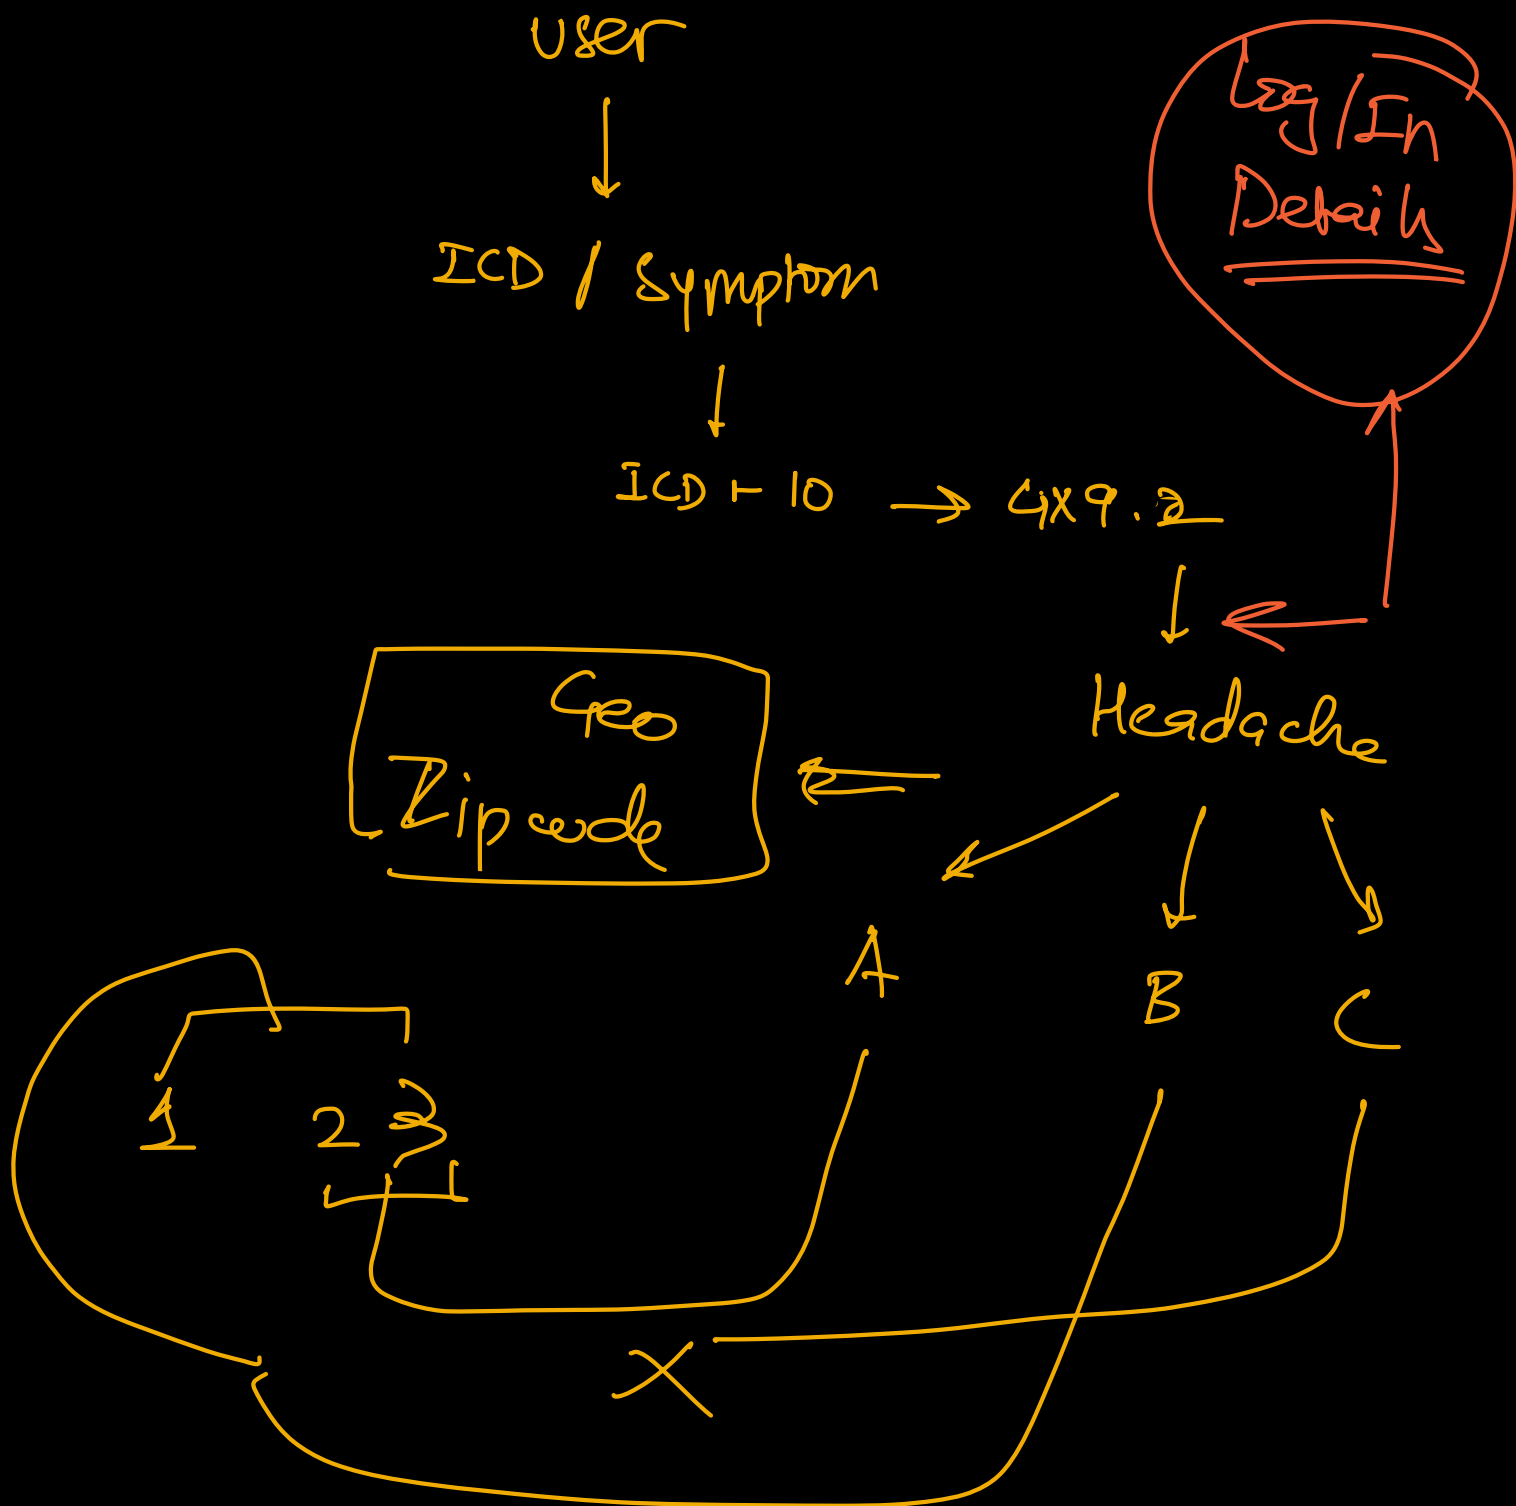 User
Log/In
Details
ICD / Symptom
ICD - 10 → 4x9.2
Headache
Geo
Zipcode
A
B
C
1 2 3
X